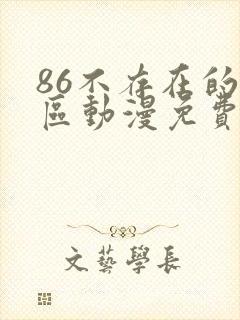 86不存在的
區動漫免費
文藝學長